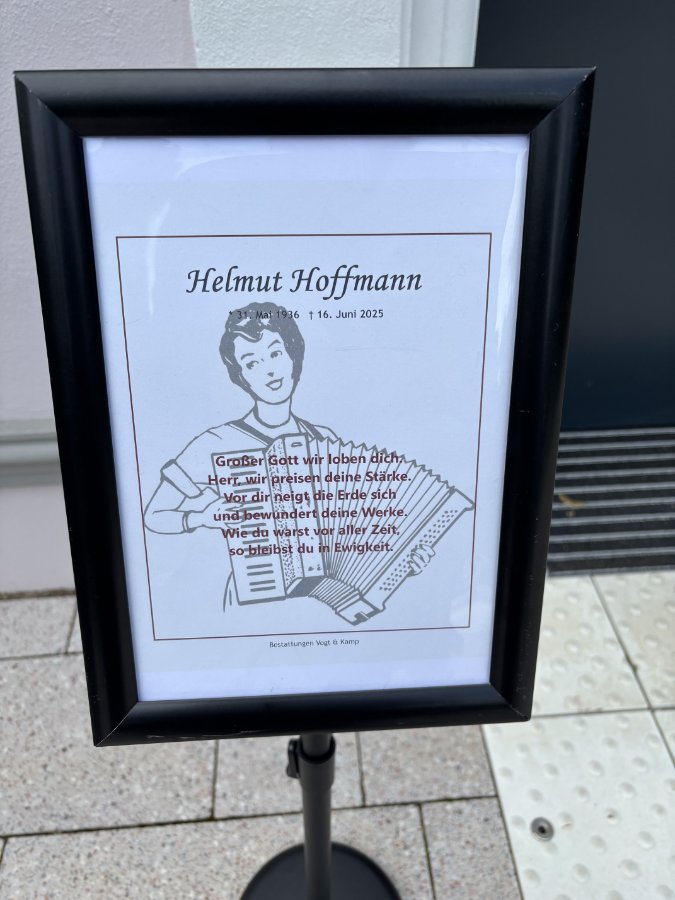 Helmut Hoffmann
* 31. Mai 1936 † 16. Juni 2025
Großer Gott wir loben dich.
Herr, wir preisen deine Stärke.
Vor dir neigt die Erde sich
und bewundert deine Werke.
Wie du warst vor aller Zeit,
so bleibst du in Ewigkeit.
Bestattungen Vogt & Kamp